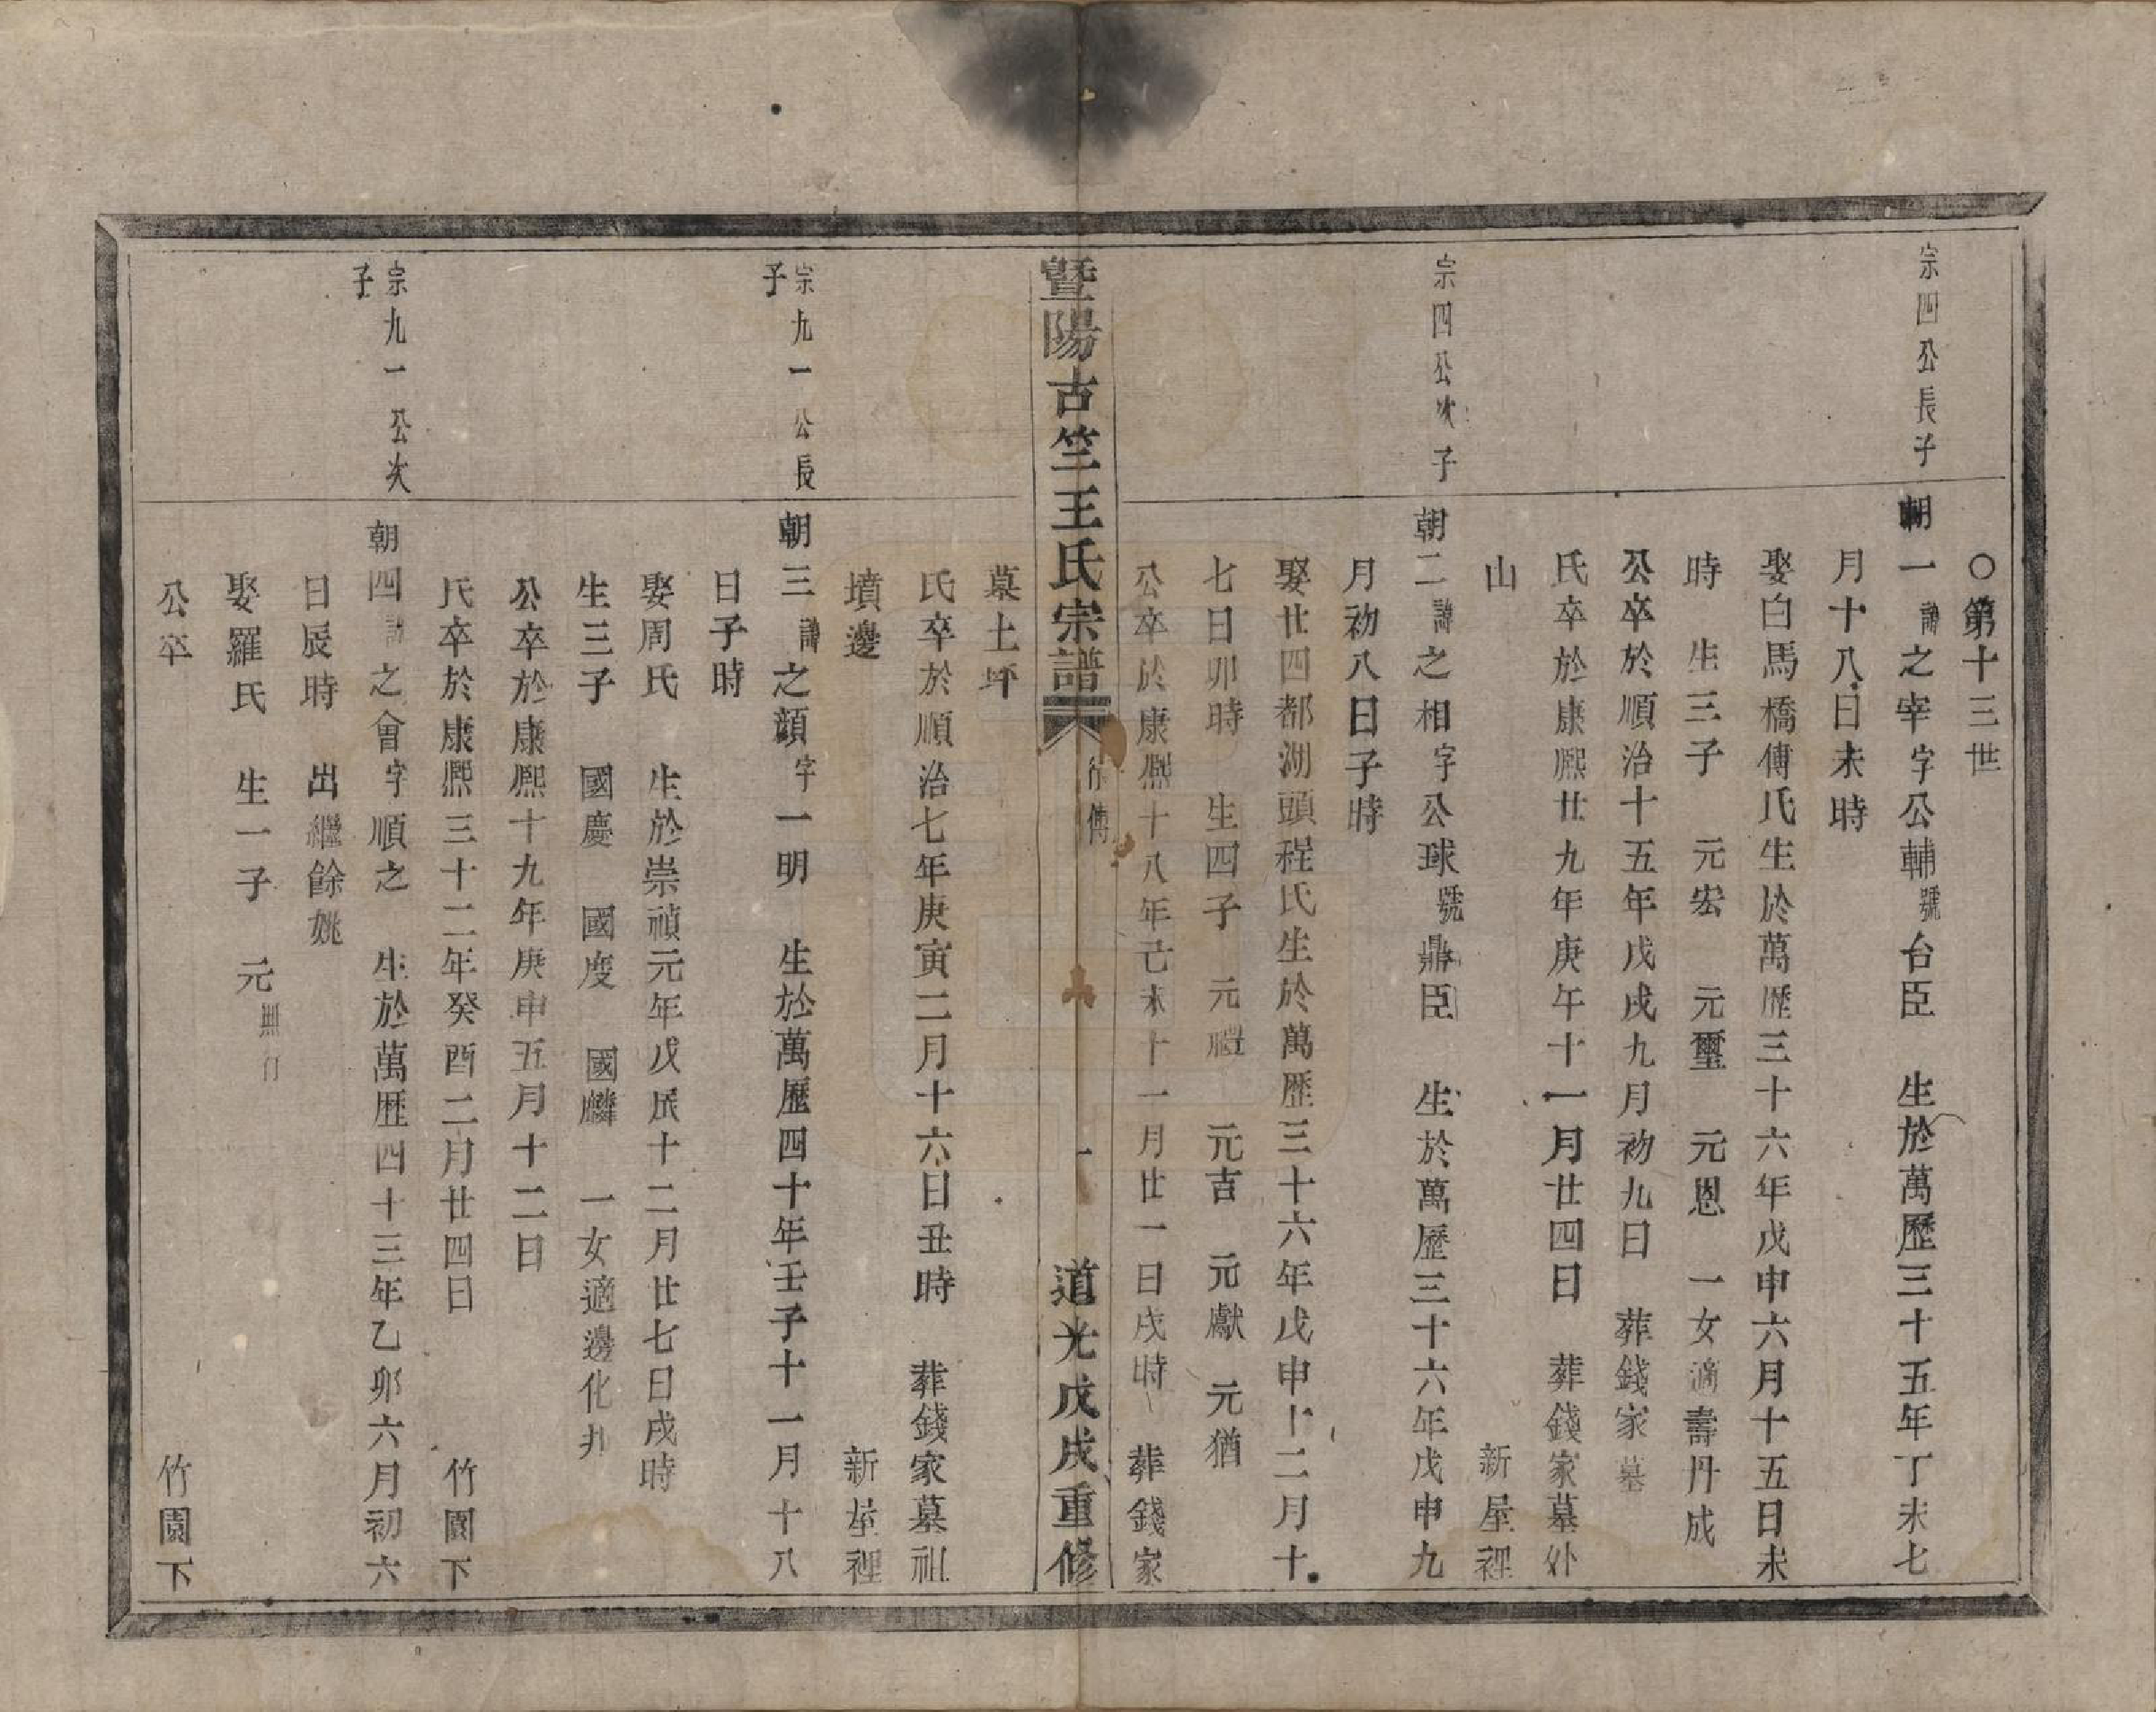 ○第十三世
宗四公長子
朝一諱之宰字公輔號台臣　生於萬歷三十五年丁未七
月十八日未時
娶白馬橋傅氏生於萬歷三十六年戊申六月十五日未
時　生三子　元宏　元璽　元恩　一女適壽丹成
公卒於順治十五年戊戌九月初九日　葬錢家墓
氏卒於康熙廿九年庚午十一月廿四日　葬錢家墓外
山　新屋裡
宗四公次子
朝二諱之相字公球號鼎臣　生於萬歷三十六年戊申九
月初八日子時
娶廿四都湖頭程氏生於萬歷三十六年戊申十二月十
七日卯時　生四子　元禮　元吉　元獻　元猶
公卒於康熙十八年己未十一月廿一日戌時　葬錢家
暨陽古竺王氏宗譜　行傳　一　道光戊戌重修
墓土坪
氏卒於順治七年庚寅二月十六日丑時　葬錢家墓祖
墳邊　新屋裡
宗九一公長
子
朝三諱之顏字一明　生於萬歷四十年壬子十一月十八
日子時
娶周氏　生於崇禎元年戊辰十二月廿七日戌時
生三子　國慶　國度　國麟　一女適邊化
公卒於康熙十九年庚申五月十二日
氏卒於康熙三十二年癸酉二月廿四日　竹園下
宗九一公次
子
朝四諱之會字順之　生於萬歷四十三年乙卯六月初六
日辰時　出繼餘姚
娶羅氏　生一子　元無行
公卒　竹園下